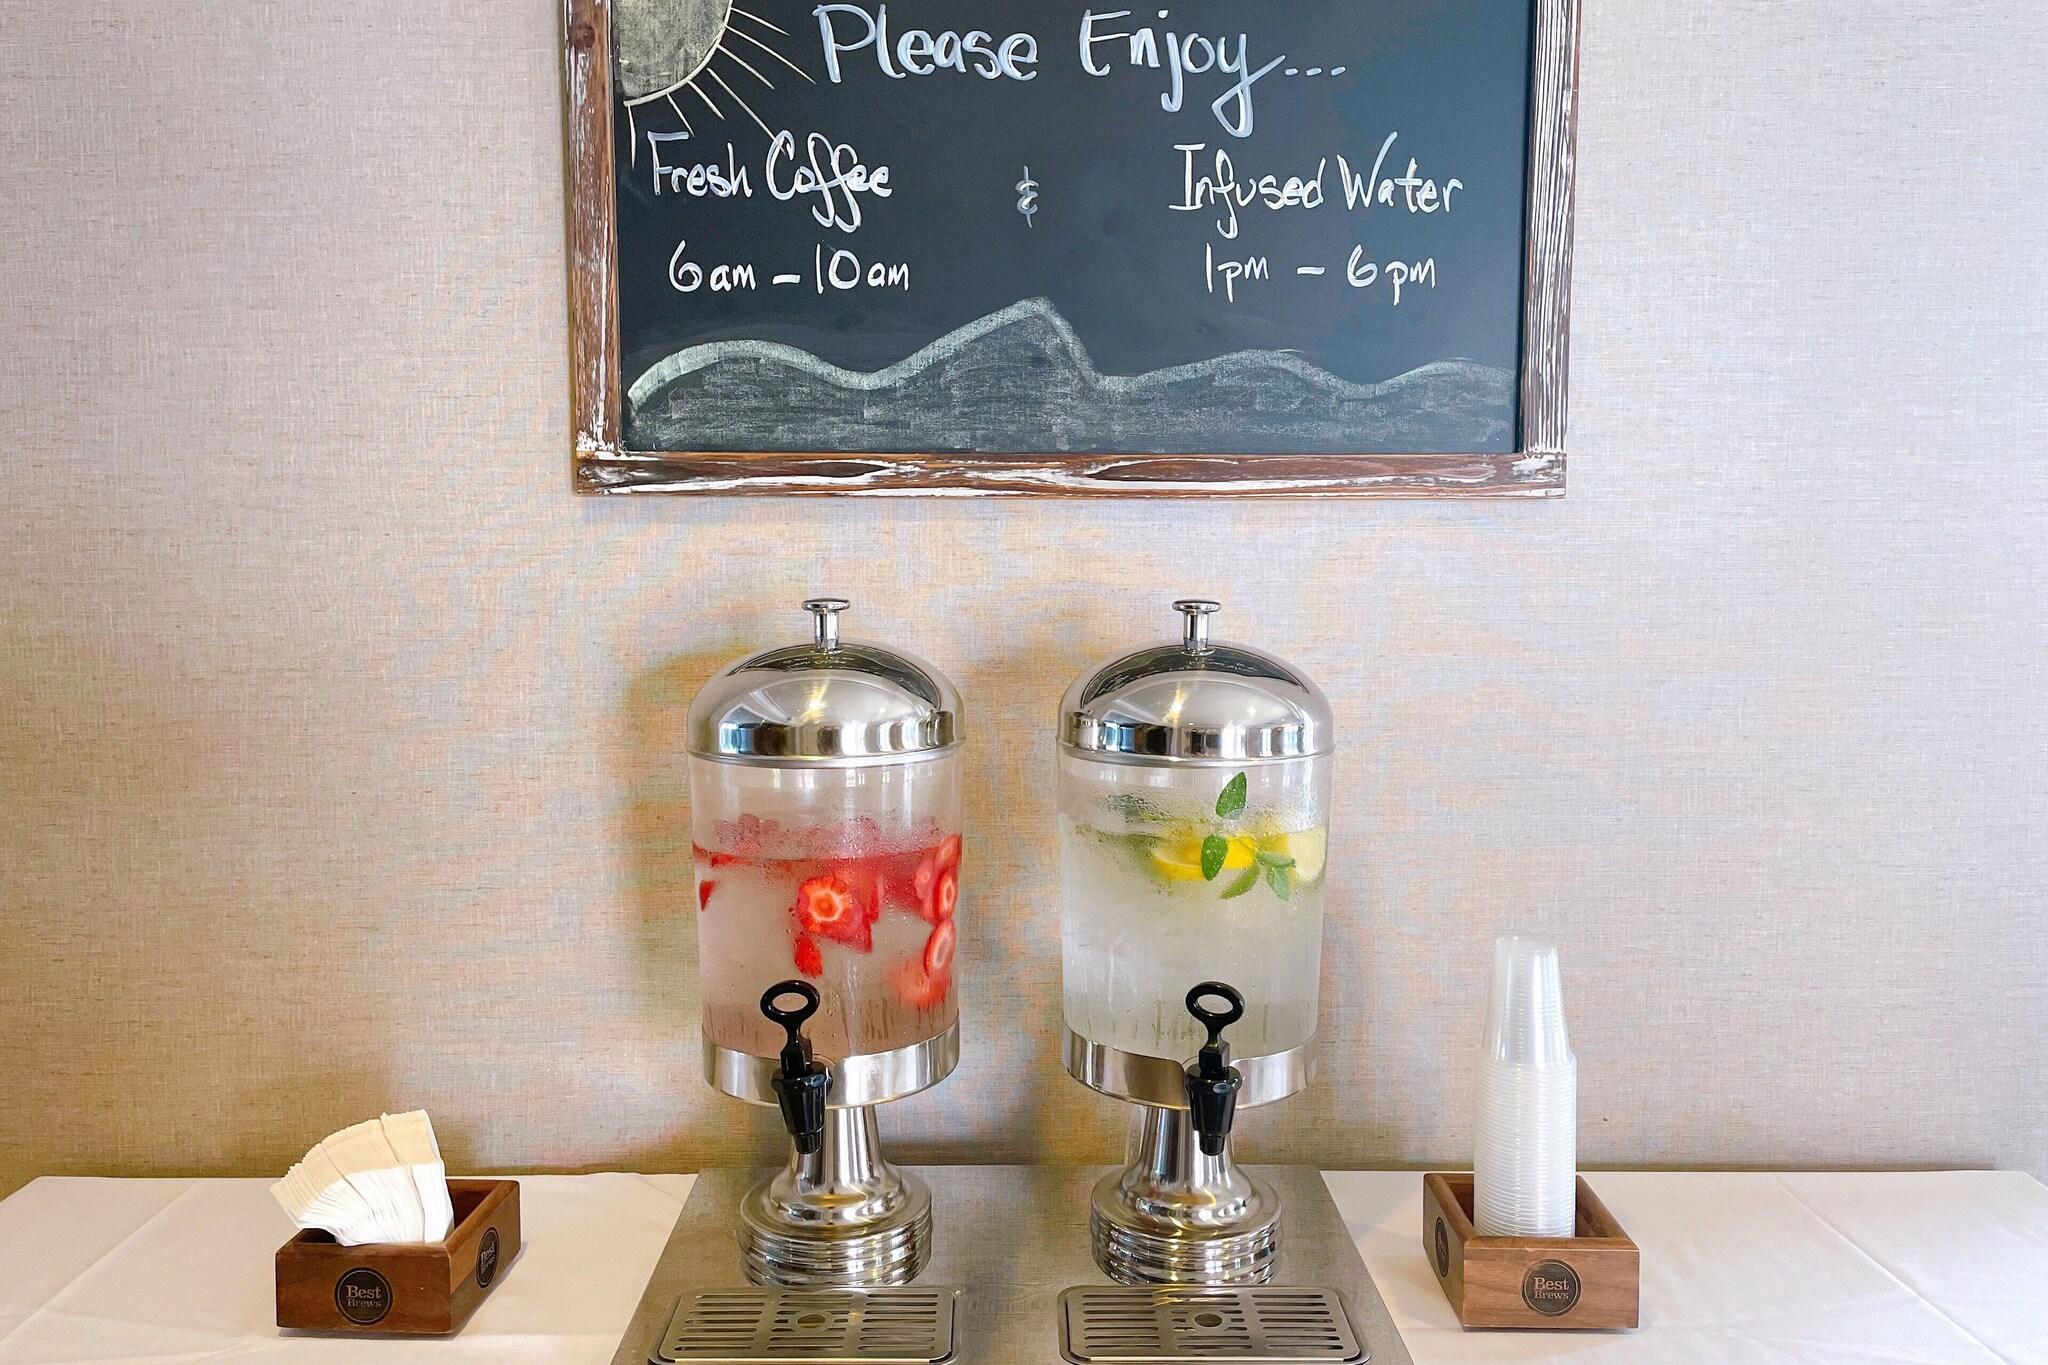 Please Enjoy...
Fresh Coffee & Infused Water
6am - 10am 1pm - 6pm
Best
Brews
Best
Brews
Best
Brews